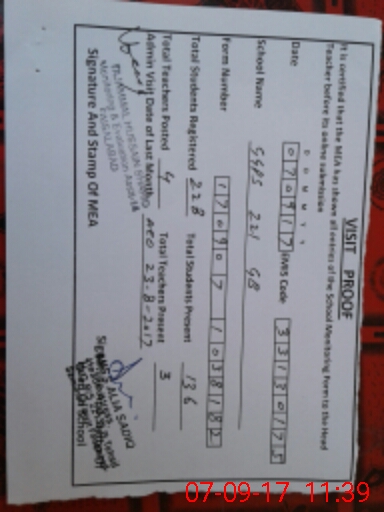 VISIT PROOF
It is certified that the MEA has shown all entries of the School Monitoring Form to the Head
Teacher before its online submission
D D M M Y Y
Date 070917 EMIS Code 33130175
School Name GGPS 221 GB
Form Number 170907 1038182
Total Students Registered 228 Total Students Present 136
Total Teachers Posted 4 Total Teachers Present 3
Admin Visit Date of Last Month AEO 23-8-2017
HUSSAIN
Monitoring & Evaluation Assistt
FAISALABAD
SADIQ
Signature And Stamp Of MEA
07-09-17 11:39